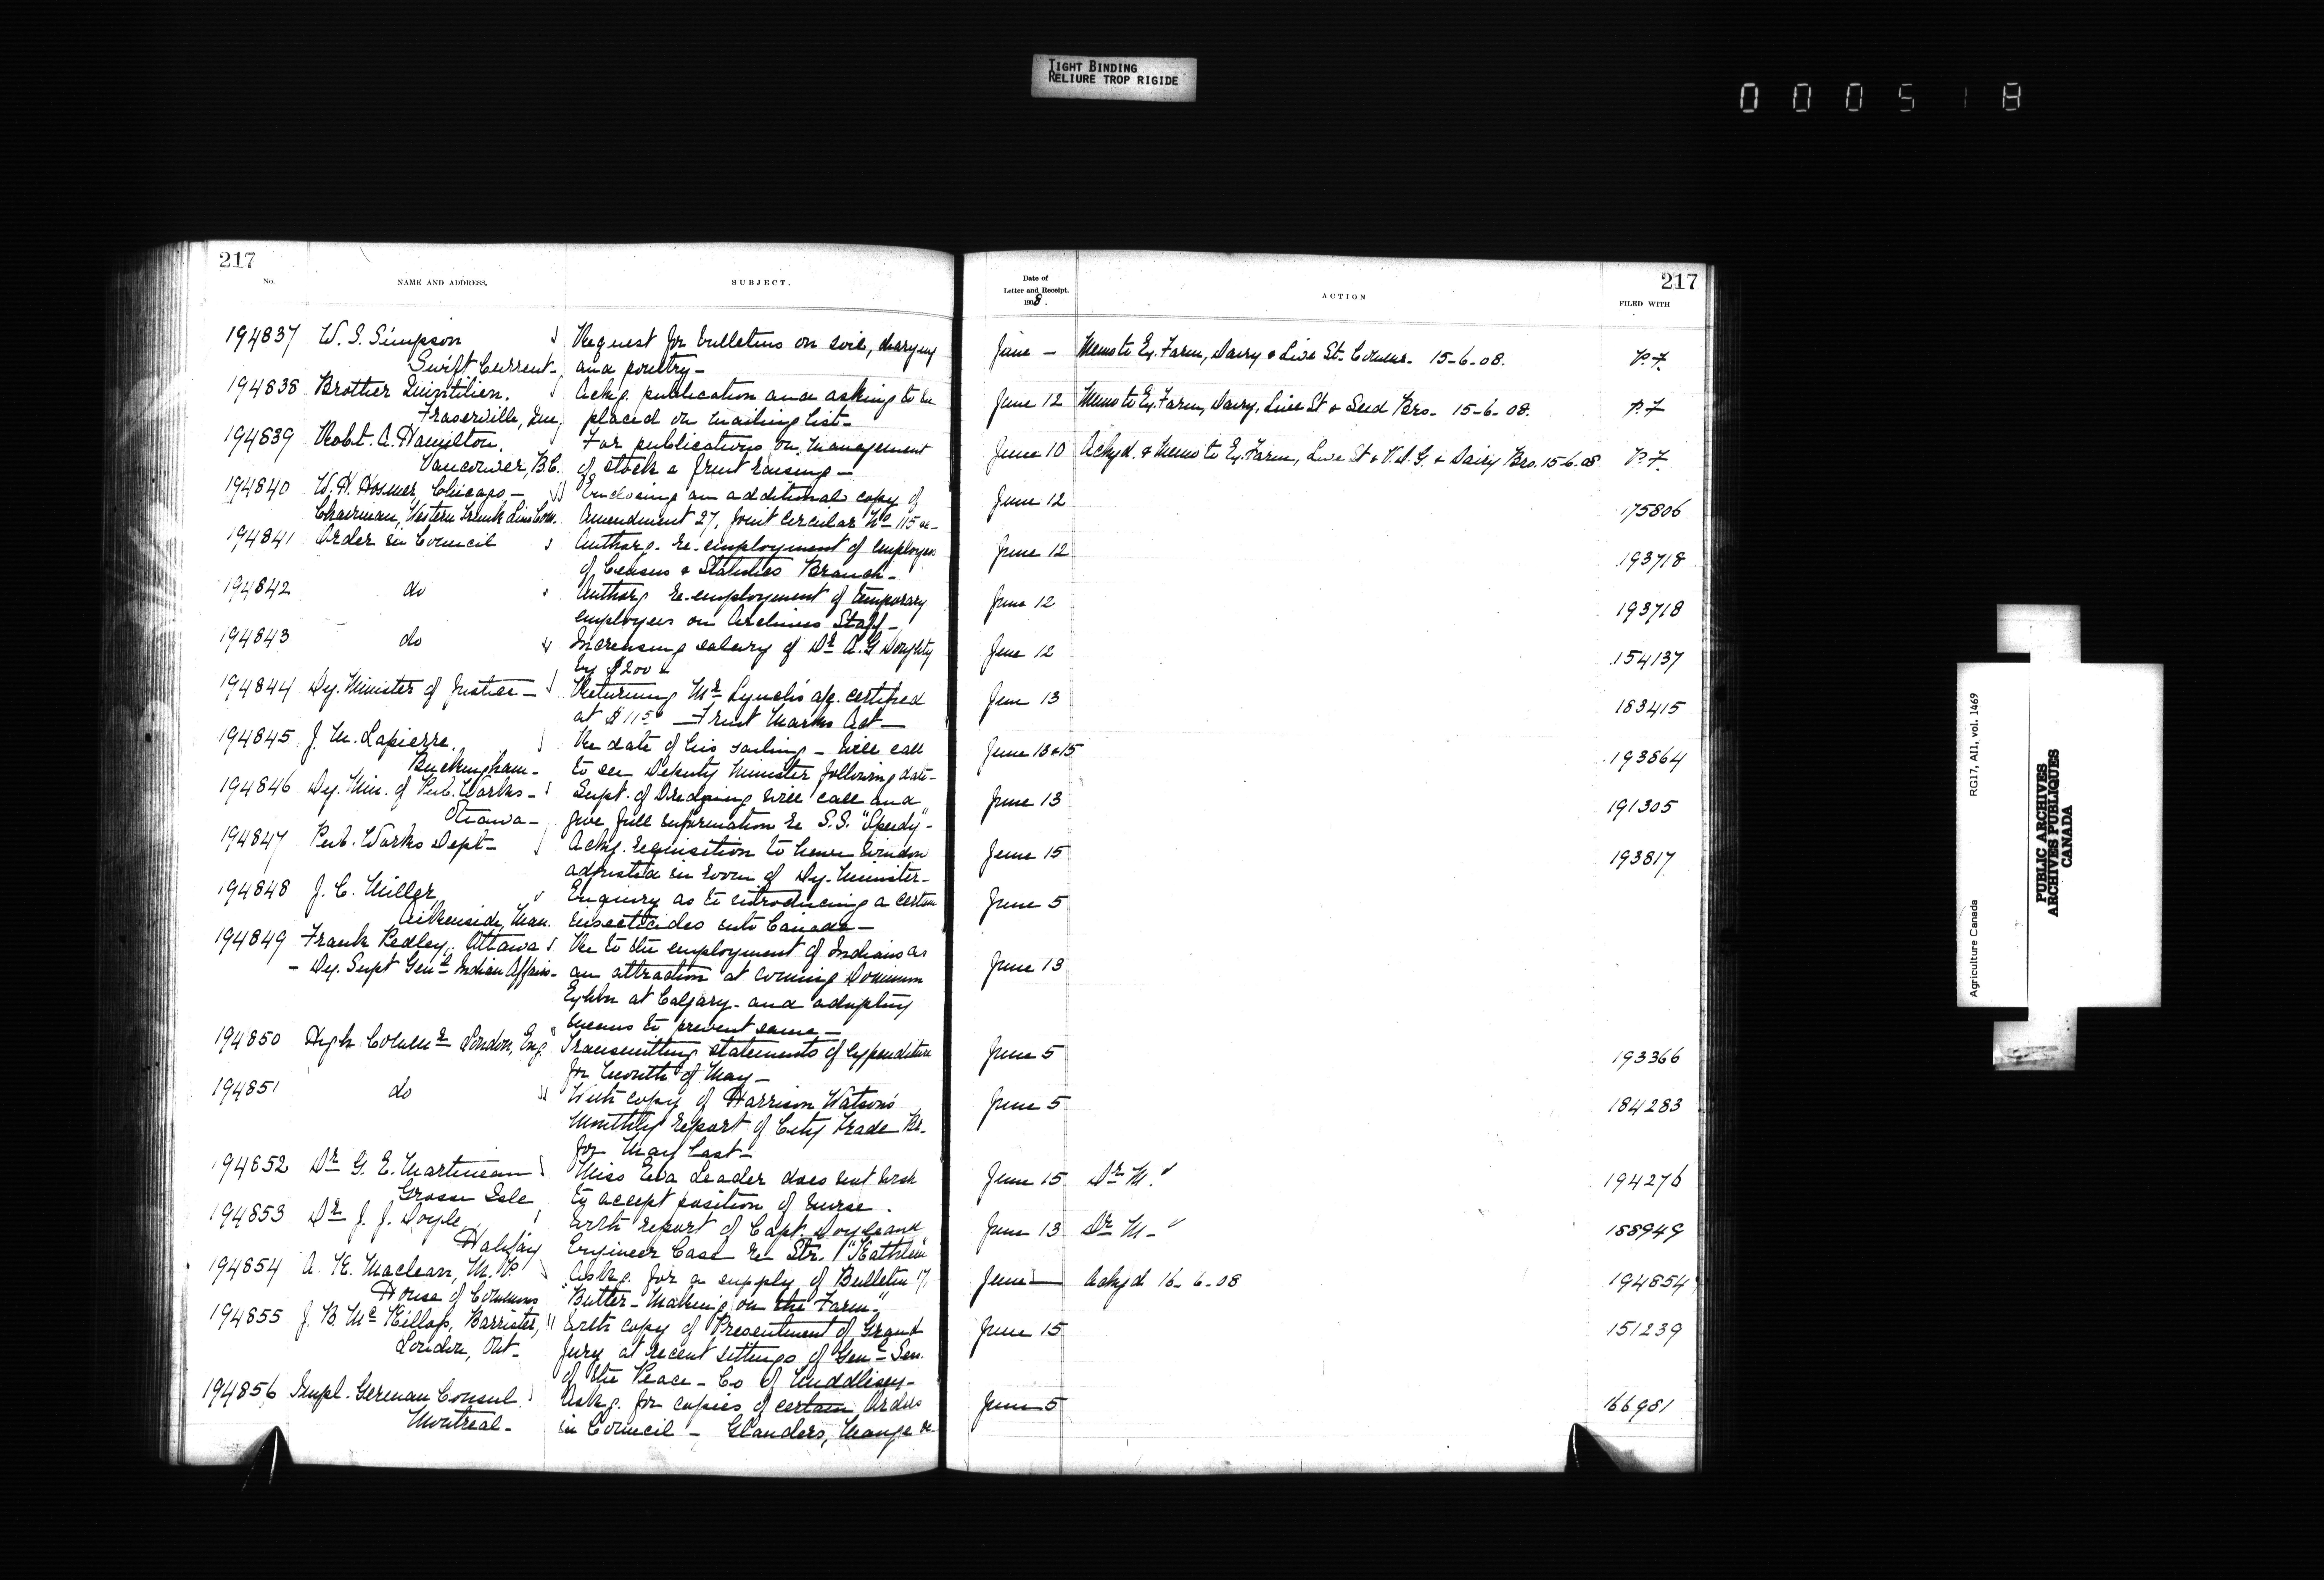 TIGHT BINDING
RELIURE TROP RIGIDE
000518
217
No. NAME AND ADDRESS. SUBJECT.
194837 W. S. Simpson Request for bulletins on soil, dairying
Swift Current - and poultry -
194838 Brother Quintilien. Ackg. publication and asking to be
Fraserville, Que, placed on mailing list -
194839 Robt. A. Hamilton, For publications on management
Vancouver, B.C. of stock & fruit raising -
194840 W. H. Hosmer, Chicago - Enclosing an additional copy of
Chairman, Western Trunk Line Com. Amendment 27, Joint Circular No 115
194841 Order in Council Authorg. re-employment of employees
of Census & Statistics Branch -
194842 do Authorg re-employment of temporary
employees on Archives Staff -
194843 do Increasing salary of Dr A. G Doughty
by $200
194844 Dy. Minister of Justice - Returning Mr Lynch's a/c. certified
at $11 50 - Fruit Marks Act -
194845 J. M. Lapierre, Re date of his sailing - Will call
Buckingham - to see Deputy Minister following date -
194846 Dy. Min. of Pub. Works - Supt. of Dredging will call and
Ottawa - give full information re S.S. "Speedy" -
194847 Pub. Works Dept - Ackg. requisition to have window
adjusted in room of Dy. Minister -
194848 J. C. Miller Enquiry as to introducing a certain
Aikenside, Man. insecticides into Canada -
194849 Frank Pedley, Ottawa Re to the employment of Indians as
- Dy. Supt Genl Indian Affairs - an attraction at coming Dominion
Exhbn at Calgary - and adopting
means to prevent same -
194850 High Commr London, Eng. Transmitting statements of expenditure
for month of May -
194851 do With copy of Harrison Watson's
Monthly Report of City Trade Br.
for May last -
194852 Dr G. E. Martineau Miss Eva Leader does not wish
Grosse Isle to accept position of nurse.
194853 Dr J. J. Doyle, With report of Capt. Doyle and
Halifax Engineer Case re Str. "Kathleen"
194854 A. K. Maclean, M. P. Askg. for a supply of Bulletin 17,
House of Commons "Butter-Making on the Farm."
194855 J. B. McKillop, Barrister, With copy of Presentment of Grand
London, Ont - Jury at recent sittings of Genl Sess.
of the Peace - Co of Middlesex -
194856 Impl. German Consul Askg. for copies of certain Orders
Montreal - in Council - Glanders, Mange &c
217
Date of
Letter and Receipt.
1908.
ACTION
FILED WITH
June - Memo to Ex. Farm, Dairy & Live St. Commr - 15-6-08. P.F.
June 12 Memo to Ex. Farm, Dairy, Live St & Seed Brs - 15-6-08. P.F
June 10 Ackyd & Memo to Ex. Farm, Live St & V.D.G. & Dairy Brs. 15-6-08 P.F.
June 12 175806
June 12 193718
June 12 193718
June 12 154137
June 13 183415
June 13 & 15 193864
June 13 191305
June 15 193817
June 5
June 13
June 5 193366
June 5 184283
June 15 Dr M. 194276
June 13 Dr M - 188949
June - Ackyd 16-6-08 194854
June 15 151239
June 5 166981
Agriculture Canada RG17, AI1, vol. 1469
PUBLIC ARCHIVES
ARCHIVES PUBLIQUES
CANADA